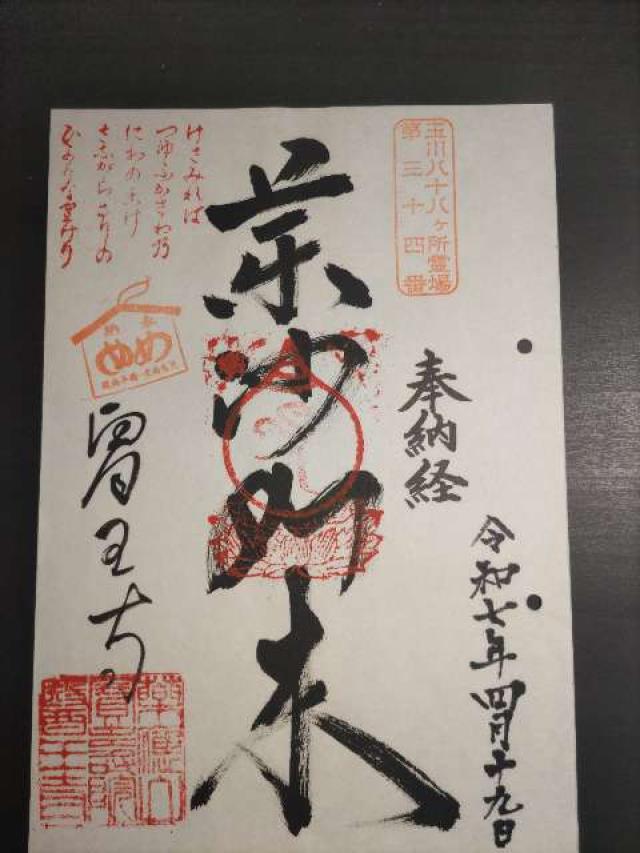 玉川八十八ヶ所霊場
第三十四番
奉納経
令和七年四月十九日
薬師如来
けさみれば
つゆふかさわ乃
にわのこけ
さながらるりの
ひかりなりけり
奉納
めめ
醫王寺